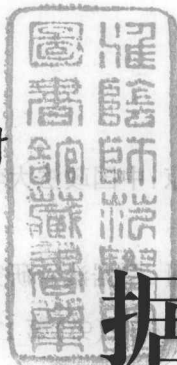 淮陰師范學院
圖書館藏書章
据